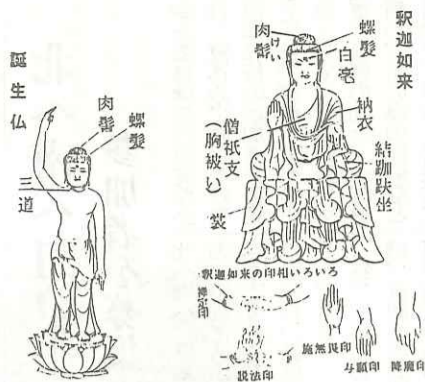 釈迦如来
肉髻
けい
螺髪
白毫
衲衣
僧祇支
(胸被い)
結跏趺坐
裳
釈迦如来の印相いろいろ
禅定印
説法印
施無畏印
与願印
降魔印
誕生仏
肉髻
螺髪
三道